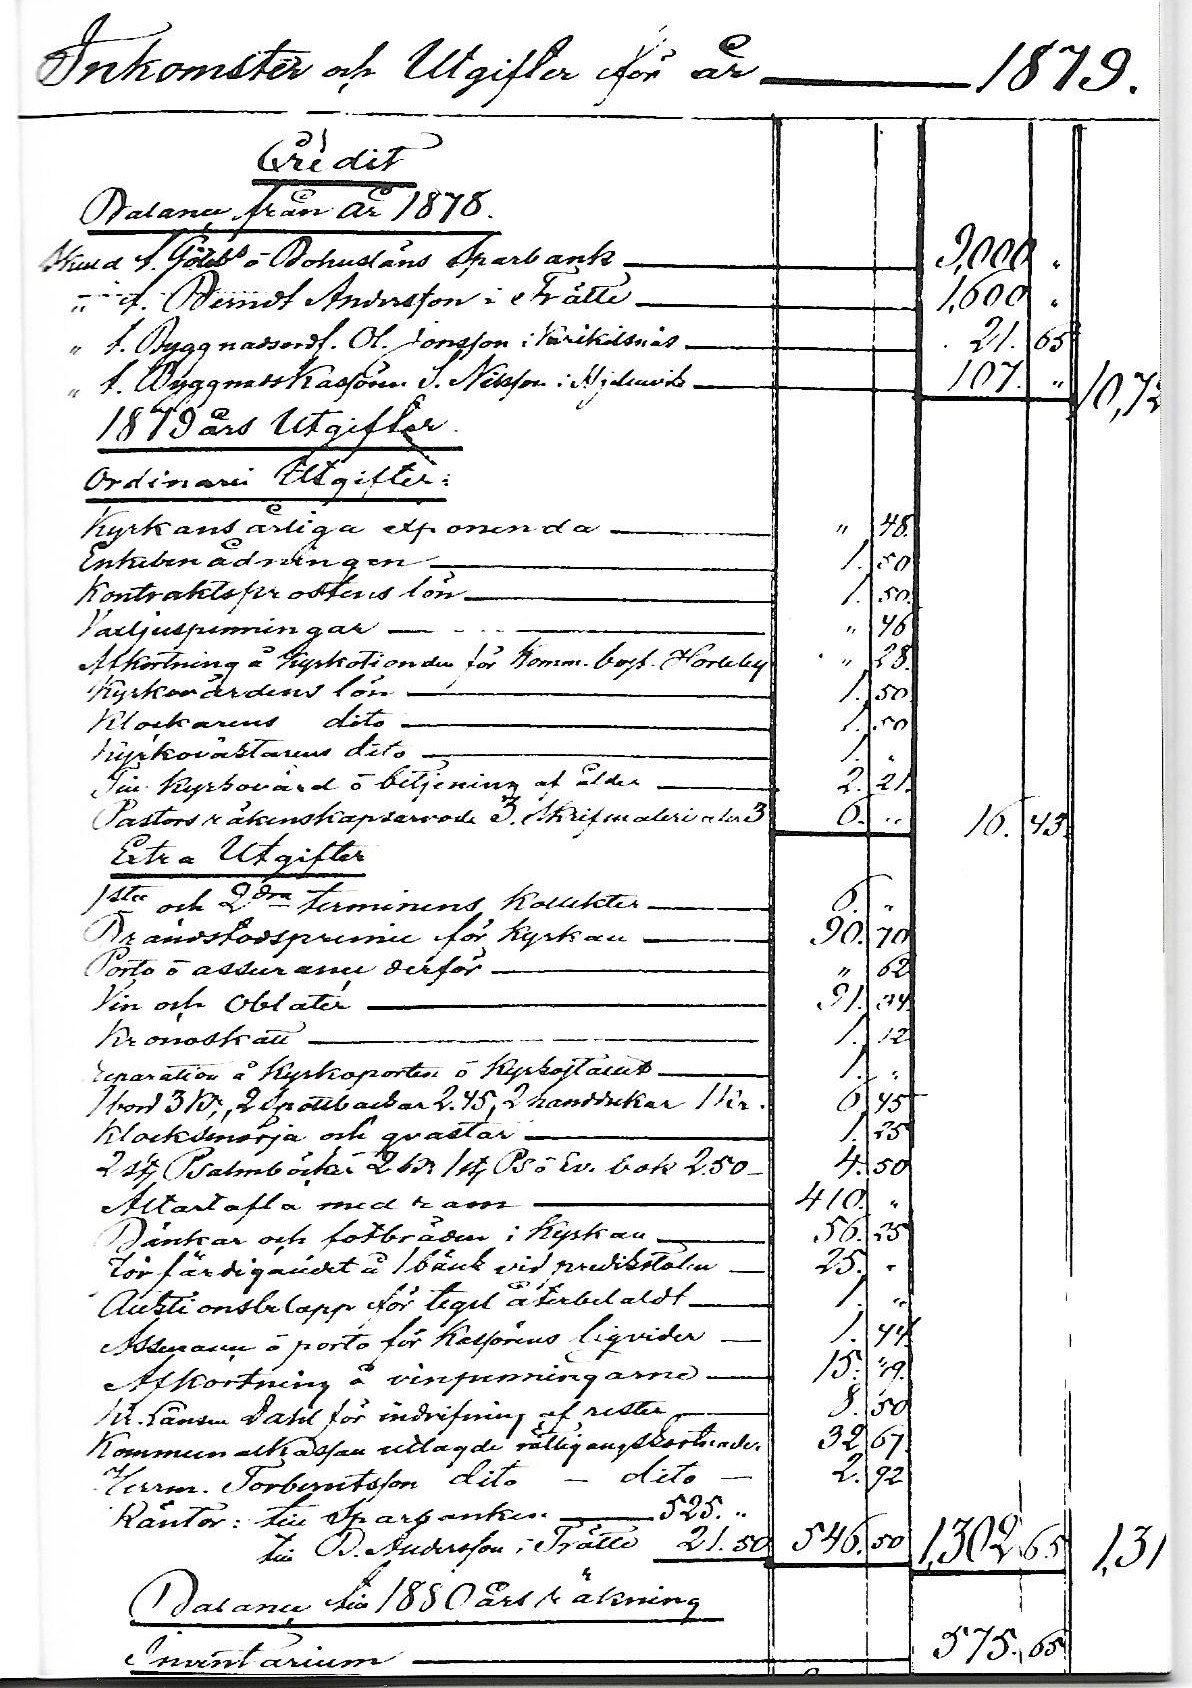 Inkomster och Utgifter för år 1879.
Credit
Balance från år 1878.
Skuld t. Götebs o Bohusläns Sparbank 9,000 "
" t. Berndt Andersson i Trätte 1,600 "
" t. Byggnadsordf. Ol. Jonsson i 21. 65
" t. Byggnadskassören S. Nilsson i Hjelmvik 107. " 10,72
1879 års Utgifter.
Ordinarie Utgifter:
Kyrkans årliga exponenda " 48.
Enkebenådningen 1. 50
Kontraktsprostens lön 1. 50.
Vaxljuspenningar " 46
Afkortning å Kyrkotionden för Komm. bost. Hogeby " 28.
Kyrkovärdens lön 1. 50
Klockarens dito 1. 50
Kyrkoväktarens dito 1. "
Till Kyrkovärd o betjening af ålder 2. 21.
Pastors räkenskapsarvode 3. Skrifmaterialier 3 6. " 16. 43.
Extra Utgifter
1sta och 2dra terminens Kollekter 6. "
Brandstodspremie för Kyrkan 90. 70
Porto o assurance derför " 62
Vin och Oblater 91. 34
Kronoskatt 1. 12
reparation å Kyrkoporten o Kyrkostallet 1. "
1 bord 3 Kr, 2 spottbackar 2.45, 2 handdukar 1 Kr. 6. 45
Klocksmörja och qvastar 1. 25
2 st Psalmböcker 2 Kr 1 st Ps o Ev. bok 2.50 4. 50
Altartafla med ram 410. "
Bänkar och fotbräden i Kyrkan 56. 25
För färdigandet å 1 bänk vid predikstolen 25. "
Auktionsbelopp för tegel återbetaldt 1. "
Assurance o porto för Kassörens liqvider 1. 44
Afkortning å vinpenningarne 15. "9.
Kr. Länsm Dahl för indrifning af rester 8. 50
Kommunalkassan utlagde rättegångskostnader 32 67
Herrm. Torberntsson dito — dito — 2. 92
Räntor: till Sparbanken 525. "
till B. Andersson i Trätte 21.50 546. 50 1,302 65 1,31
Balance till 1880 års räkning
Inventarium 575. 65